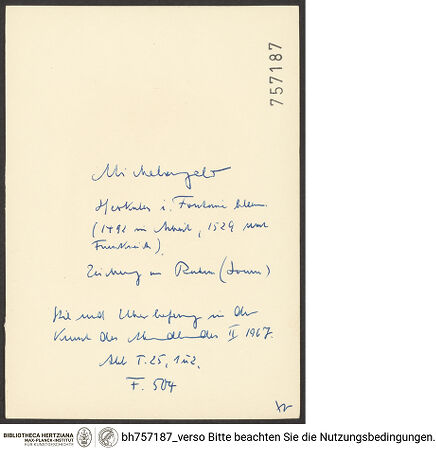 757187
Michelangelo
Herkules i. Fontainebleau.
(1492 in Arbeit, 1529 nach
Frankreich).
Zeichnung von Rubens (Louvre)
Stil und Überlieferung in der
Kunst des Abendlandes II 1967.
Abb T. 25, 1 u 2.
F. 504
BIBLIOTHECA HERTZIANA
MAX-PLANCK-INSTITUT
FÜR KUNSTGESCHICHTE
bh757187_verso Bitte beachten Sie die Nutzungsbedingungen.